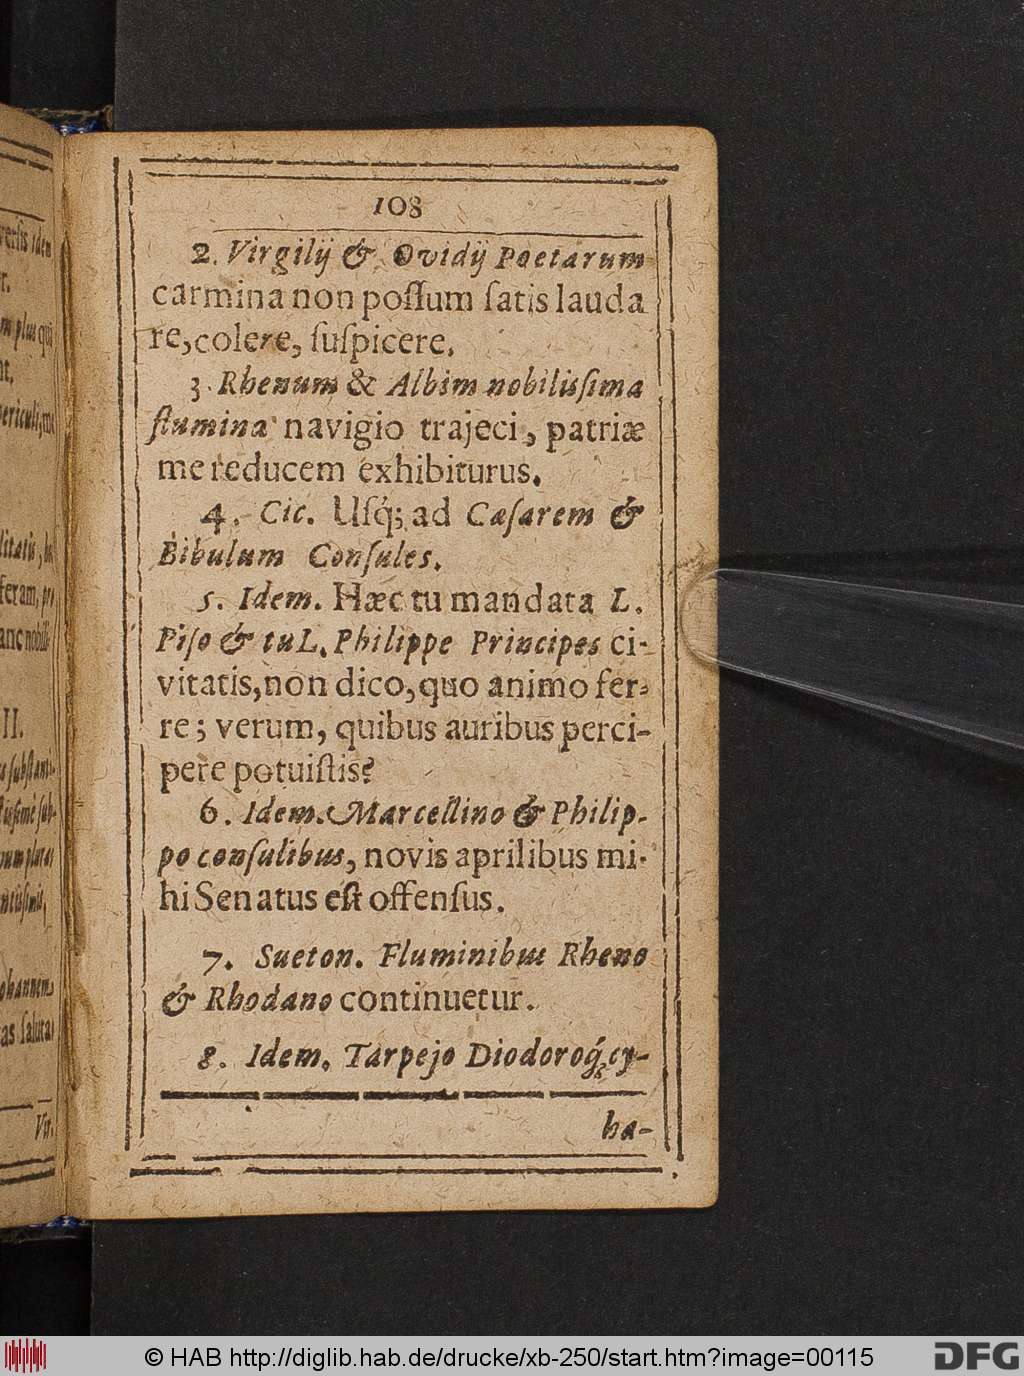 108
2. Virgilij & Ovidij Poetarum
carmina non poſſum ſatis lauda
re, colere, ſuſpicere.
3. Rhenum & Albim nobiliſsima
flumina navigio trajeci, patriæ
me reducem exhibiturus.
4. Cic. Uſq́; ad Cæſarem &
Bibulum Conſules.
5. Idem. Hæc tu mandata L.
Piſo & tu L. Philippe Principes ci-
vitatis, non dico, quo animo fer-
re; verum, quibus auribus perci-
pere potuiſtis?
6. Idem. Marcellino & Philip-
po conſulibus, novis aprilibus mi-
hi Senatus eſt offenſus.
7. Sueton. Fluminibus Rheno
& Rhodano continuetur.
8. Idem. Tarpejo Diodoroq́; cy-
ha-
II.
Vir.
© HAB http://diglib.hab.de/drucke/xb-250/start.htm?image=00115
DFG